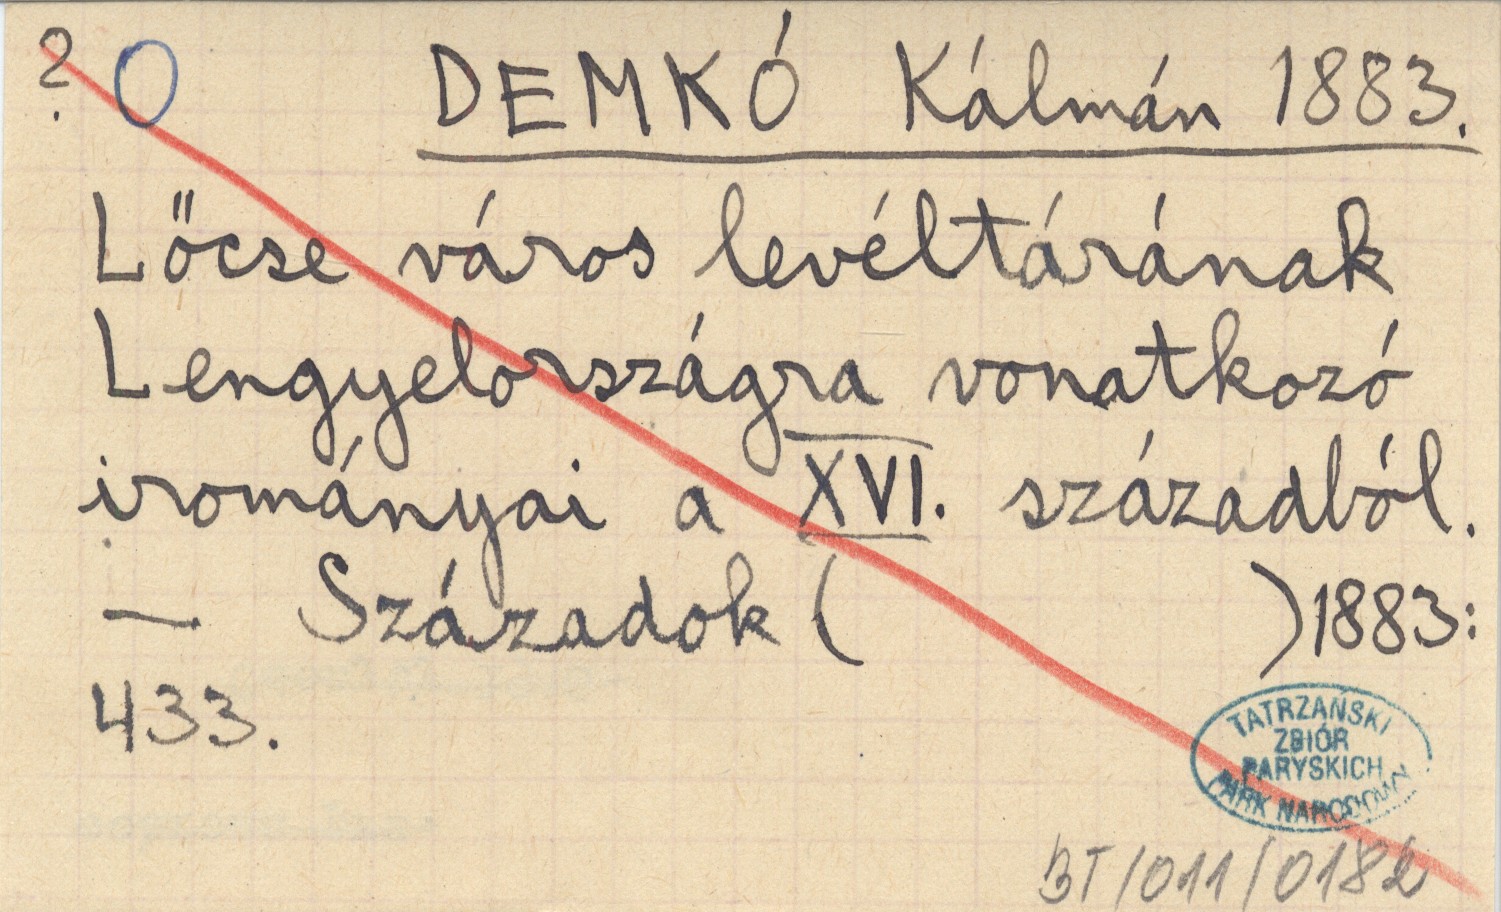 ? O DEMKÓ Kálmán 1883.
Lőcse város levéltárának
Lengyelországra vonatkozó
irományai a XVI. századból.
— Századok ( ) 1883:
433.
TATRZAŃSKI
ZBIÓR
PARYSKICH
PARK NARODOWY
BT/011/0182